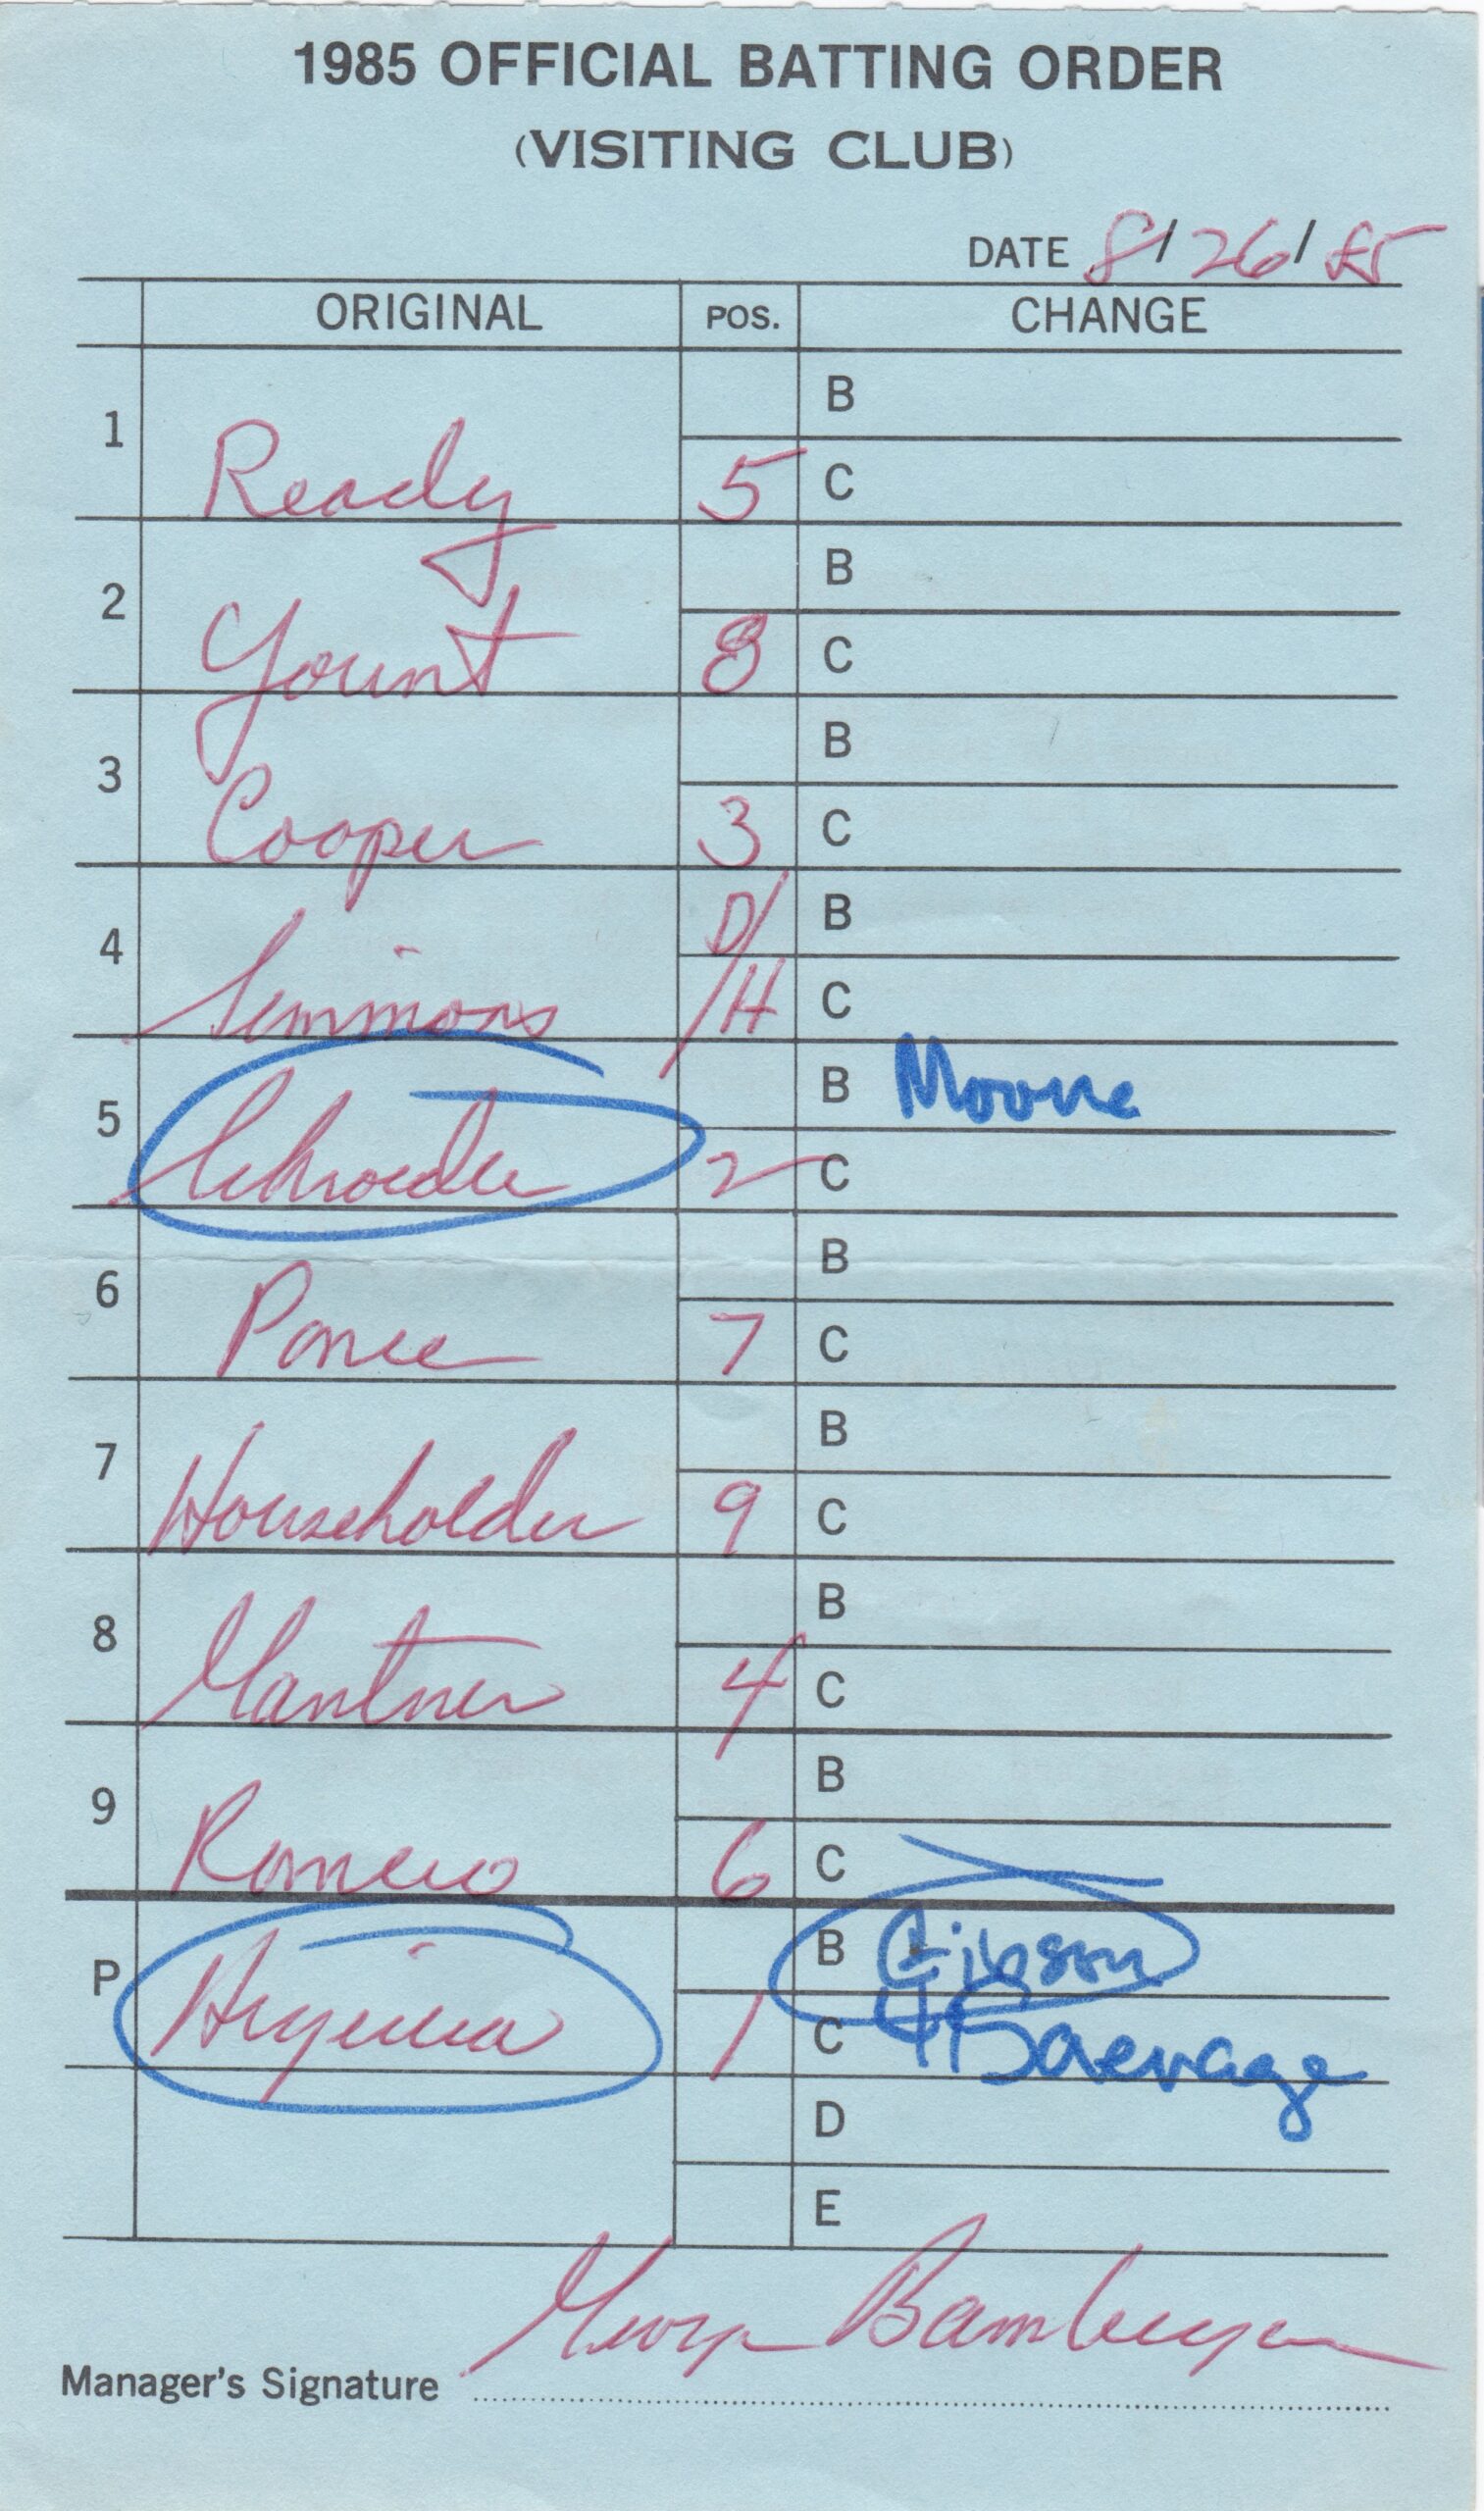 1985 OFFICIAL BATTING ORDER
(VISITING CLUB)
DATE 8/26/85
ORIGINAL POS. CHANGE
B
1 Ready 5 C
B
2 Yount 8 C
B
3 Cooper 3 C
D/ B
4 Simmons /H C
B Moore
5 Schroeder 2 C
B
6 Ponce 7 C
B
7 Householder 9 C
B
8 Gantner 4 C
B
9 Romero 6 C
B Gibson
P Higuera 1 C
D
E
George Bamberger
Manager's Signature